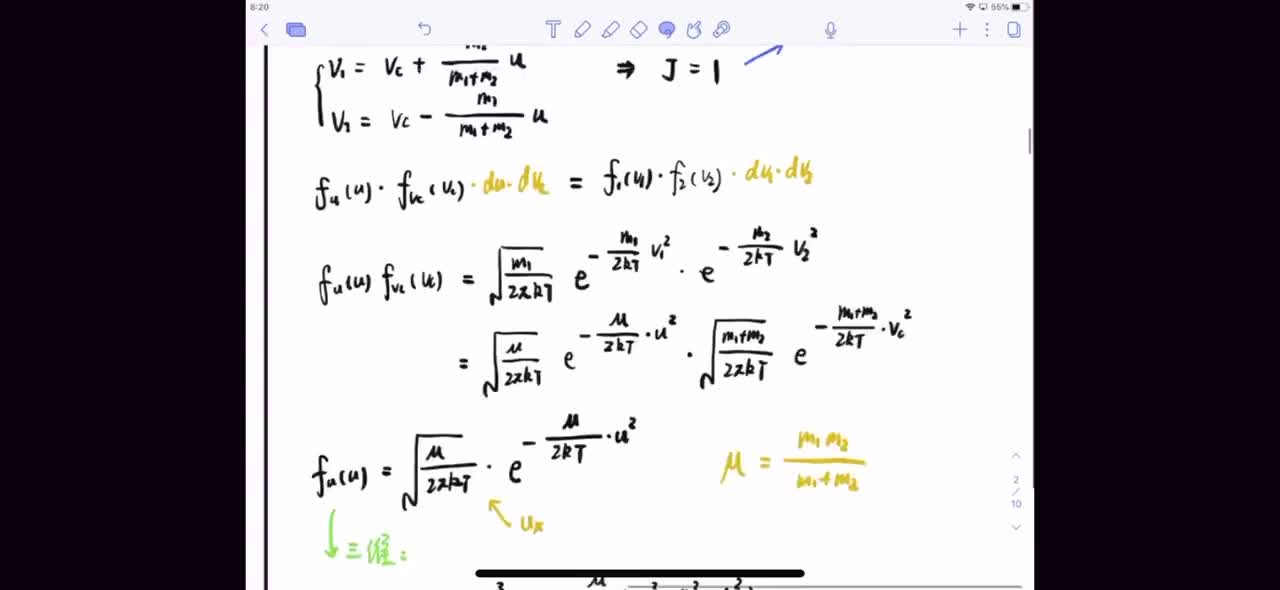 8:20
55%
V₁ = Vc + m₂/(m₁+m₂) u ⇒ J = 1
V₂ = Vc − m₁/(m₁+m₂) u
fᵤ(u) · f_vc(Vc) · du · dVc = f₁(V₁) · f₂(V₂) · dV₁ · dV₂
fᵤ(u) f_vc(Vc) = √(m₁/2πkT) e^(−m₁/2kT V₁²) · e^(−m₂/2kT V₂²)
= √(μ/2πkT) e^(−μ/2kT · u²) · √((m₁+m₂)/2πkT) e^(−(m₁+m₂)/2kT · Vc²)
fᵤ(u) = √(μ/2πkT) · e^(−μ/2kT · u²) μ = m₁m₂/(m₁+m₂)
uₓ
三维:
2/10